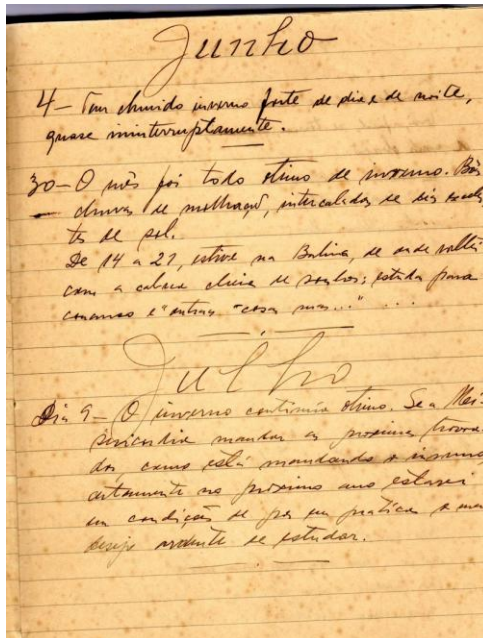 Junho
4 – Tem chovido inverno forte de dia e de noite,
quase ininterruptamente.
30 – O mês foi todo otimo de inverno. Bôas
chuvas de molhação, intercaladas de dias excelen
tes de sol.
De 14 a 21, estive na Bahia, de onde voltei
com a cabeça cheia de sonhos: estudar para
concurso e "outras "cosas mas..." ...
Julho
Dia 9 – O inverno continúa otimo. Se a Mi
sericordia mandar as proximas trovoa
das como está mandando o inverno,
certamente no próximo ano estarei
em condição de por em pratica o meu
desejo ardente de estudar.